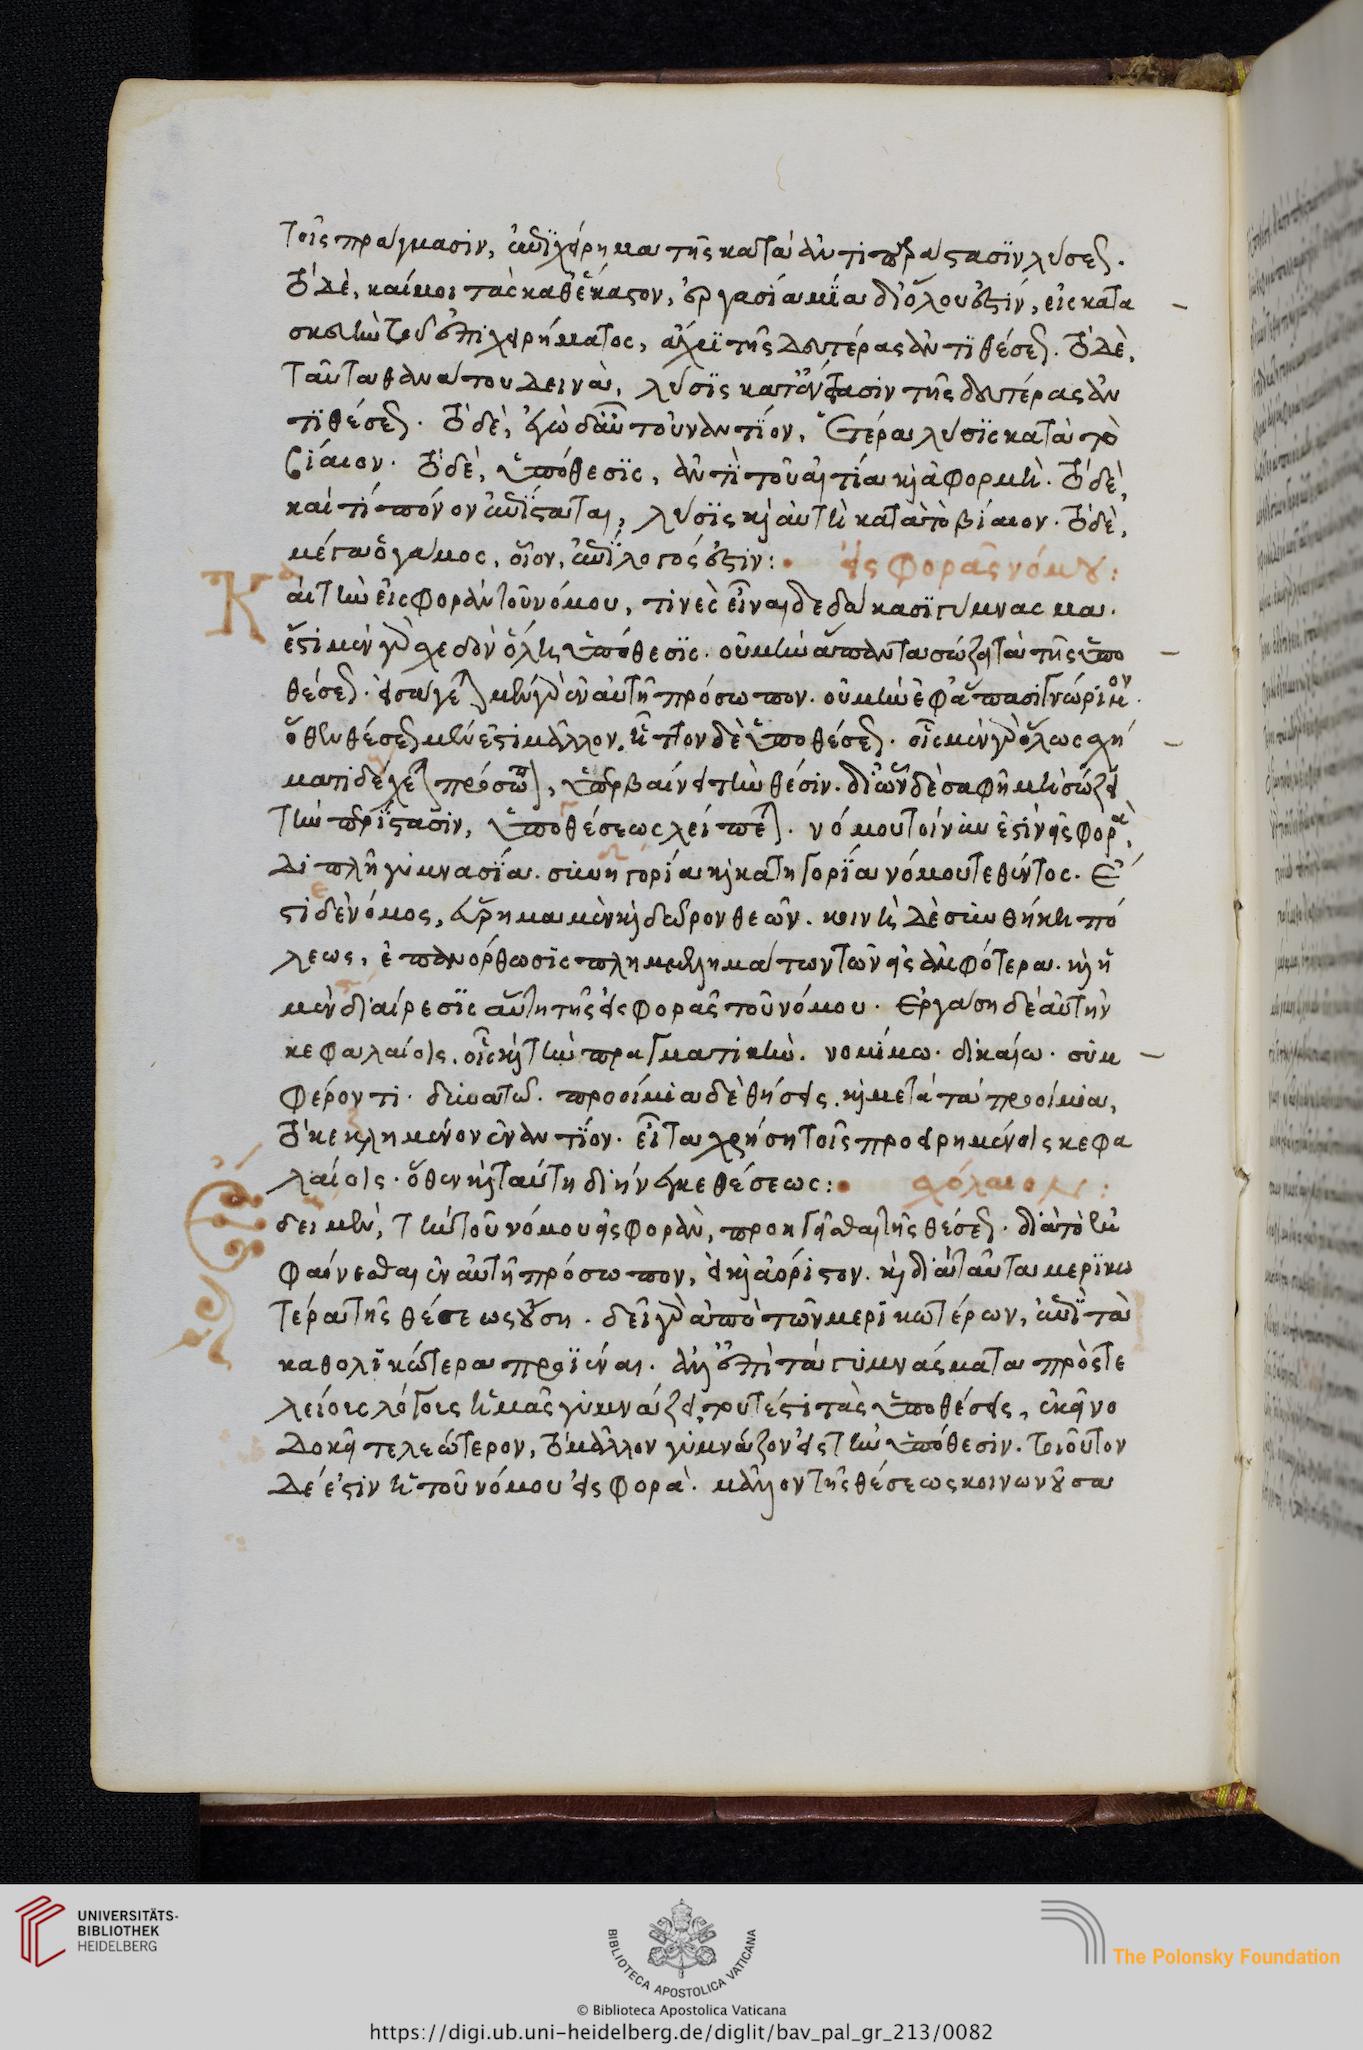 τοῖς πράγμασιν, ἀντιχείρημα τῆς κατὰ ἀντιπαράστασιν λύσεως.
τὸ δὲ, καί μοι τὰς καθ' ἕκαστον, ἐργασία μία δι' ὅλου ἐστὶν, εἰς κατα
σκευὴν τοῦ ἐπιχειρήματος, ἄχρι τῆς δευτέρας ἀντιθέσεως. τὸ δὲ,
ταῦτα θανάτου δεινὰ, λύσις κατ' ἔνστασιν τῆς δευτέρας ἀν
τιθέσεως. τὸ δὲ, ἐγὼ δ' ἂν τοὐναντίον, ἑτέρα λύσις κατὰ τὸ
βίαιον. τὸ δὲ, ὑπόθεσις, ἀντὶ τοῦ αἰτία καὶ ἀφορμὴ. τὸ δὲ,
καί τι πόνον ἀντίσταται, λύσις καὶ αὐτὴ κατὰ τὸ βίαιον. τὸ δὲ,
μέγα ὁ γάμος, οἷον, ἀντίλογός ἐστιν: εἰσφορᾶς νόμου:
Καὶ τὴν εἰσφορὰν τοῦ νόμου, τινὲς εἶναι δεδώκασι γύμνασμα.
ἔστι μὲν γὰρ σχεδὸν ὅλη ὑπόθεσις. οὐ μὴν ἅπαντα σώζει τὰ τῆς ὑπο
θέσεως. εἰσάγεται μὲν γὰρ ἐν αὐτῆ πρόσωπον. οὐ μὴν ἐφ' ἅπασι γνώριμον.
ὅθεν θέσεως μέν ἐστι μᾶλλον, ἧττον δὲ ὑποθέσεως. οἷς μὲν γὰρ ὅλως σχή
ματι δέχεται πρόσωπον, ὑπερβαίνει τὴν θέσιν. δι' ὧν δὲ σαφῆ μὴ σώζει
τὴν περίστασιν, ὑποθέσεως λείπεται. νόμου τοίνυν ἐστὶν εἰσφορὰ,
διπλῆ γυμνασία. συνηγορία καὶ κατηγορία νόμου τεθέντος. Ἔ
στι δὲ νόμος, εὕρημα μὲν καὶ δῶρον θεῶν. κοινὴ δὲ συνθήκη πό
λεως, ἐπανόρθωσις πλημμελημάτων τῶν εἰς ἀμφότερα. καὶ ἡ
μὲν διαίρεσις αὕτη τῆς εἰσφορᾶς τοῦ νόμου. Ἐργάση δὲ αὐτὴν
κεφαλαίοις, οἷς καὶ τὴν πραγματικὴν. νομίμω. δικαίω. συμ
φέροντι. δυνατῶ. προοίμια δὲ θήσεις. καὶ μετὰ τὰ προοίμια,
τὸ κεκλημένον ἐναντίον. εἶτα χρήση τοῖς προειρημένοις κεφα
λαίοις. ὅθεν καὶ ταύτη διήνεγκε θέσεως: σχόλιον:
Ἔδει μὲν, τὴν τοῦ νόμου εἰσφορὰν, προηγεῖσθαι τῆς θέσεως. διὰ τὸ ἐμ
φαίνεσθαι ἐν αὐτῆ πρόσωπον, εἰ καὶ ἀόριστον. καὶ διὰ ταῦτα μερικω
τέρα τῆς θέσεως οὖσα. δεῖ γὰρ ἀπὸ τῶν μερικωτέρων, ἐπὶ τὰ
καθολικώτερα προϊέναι. ἀλλ' ἐπεὶ τὰ γυμνάσματα πρὸς τε
λείους λόγους ἡμᾶς γυμνάζει, τουτέστι τὰς ὑποθέσεις, ἐκεῖνο
δοκεῖ τελεώτερον, τὸ μᾶλλον γυμνάζον εἰς τὴν ὑπόθεσιν. τοιοῦτον
δέ ἐστιν ἡ τοῦ νόμου εἰσφορά. μᾶλλον τῆς θέσεως κοινωνοῦσα
UNIVERSITÄTS-
BIBLIOTHEK
HEIDELBERG
BIBLIOTECA APOSTOLICA VATICANA
The Polonsky Foundation
© Biblioteca Apostolica Vaticana
https://digi.ub.uni-heidelberg.de/diglit/bav_pal_gr_213/0082